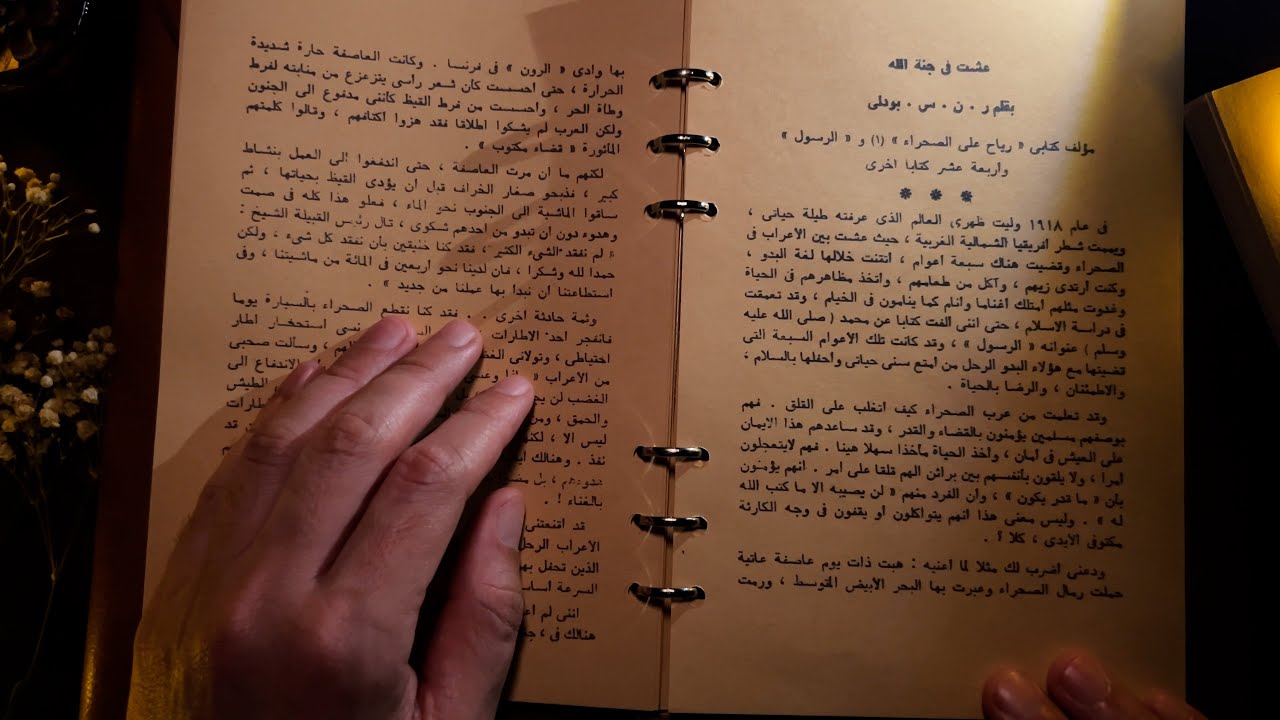 عشت فى جنة الله
بقلم ر . ن . س . بودلى
مؤلف كتابى « رياح على الصحراء » (١) و « الرسول »
وأربعة عشر كتابا اخرى
* * *
فى عام ١٩١٨ وليت ظهرى العالم الذى عرفته طيلة حياتى ،
ويممت شطر افريقيا الشمالية الغربية ، حيث عشت بين الأعراب فى
الصحراء وقضيت هناك سبعة اعوام ، أتقنت خلالها لغة البدو ،
وكنت أرتدى زيهم ، وآكل من طعامهم ، وأتخذ مظاهرهم فى الحياة
وغدوت مثلهم أمتلك أغناما وأنام كما ينامون فى الخيام ، وقد تعمقت
فى دراسة الاسلام ، حتى اننى ألفت كتابا عن محمد ( صلى الله عليه
وسلم ) عنوانه « الرسول » ، وقد كانت تلك الأعوام السبعة التى
قضيتها مع هؤلاء البدو الرحل من أمتع سنى حياتى وأحفلها بالسلام ،
والاطمئنان ، والرضا بالحياة .
وقد تعلمت من عرب الصحراء كيف أتغلب على القلق . فهم
بوصفهم مسلمين يؤمنون بالقضاء والقدر ، وقد ساعدهم هذا الايمان
على العيش فى أمان ، وأخذ الحياة مأخذا سهلا هينا . فهم لايتعجلون
أمرا ، ولا يلقون بأنفسهم بين براثن الهم قلقا على أمر . انهم يؤمنون
بأن « ما قدر يكون » ، وأن الفرد منهم « لن يصيبه الا ما كتب الله
له » . وليس معنى هذا انهم يتواكلون أو يقفون فى وجه الكارثة
مكتوفى الأيدى ، كلا ؟ .
ودعنى اضرب لك مثلا لما أعنيه : هبت ذات يوم عاصفة عاتية
حملت رمال الصحراء وعبرت بها البحر الأبيض المتوسط ، ورمت
بها وادى « الرون » فى فرنسا . وكانت العاصفة حارة شديدة
الحرارة ، حتى احسست كأن شعر راسى يتزعزع من منابته لفرط
وطأة الحر ، وأحسست من فرط القيظ كأننى مدفوع الى الجنون
ولكن العرب لم يشكوا اطلاقا فقد هزوا اكتافهم ، وقالوا كلمتهم
المأثورة « قضاء مكتوب » .
لكنهم ما ان مرت العاصفة ، حتى اندفعوا الى العمل بنشاط
كبير ، فذبحو صغار الخراف قبل ان يؤدى القيظ بحياتها ، ثم
ساقوا الماشية الى الجنوب نحو الماء ، فعلو هذا كله فى صمت
وهدوء دون ان تبدو من احدهم شكوى ، قال رئيس القبيلة الشيخ :
« لم نفقد الشىء الكثير ، فقد كنا خليقين بأن نفقد كل شىء ، ولكن
حمدا لله وشكرا ، فان لدينا نحو أربعين فى المائة من ماشيتنا ، وفى
استطاعتنا ان نبدا بها عملنا من جديد » .
وثمة حادثة اخرى .. فقد كنا نقطع الصحراء بالسيارة يوما
فانفجر احد الاطارات نسى استحضار اطار
احتياطى ، وتولانى الغضب ، وسألت صحبى
من الأعراب « ماذا الاندفاع الى
الغضب لن الطيش
والحمق ، ومن
ليس الا ، لكن قد
نفذ . وهنالك
بالغناء ! .
قد اقنعتنى
الأعراب الرحل
الذين تحفل
السرعة أساس
اننى لم
هنالك فى ،